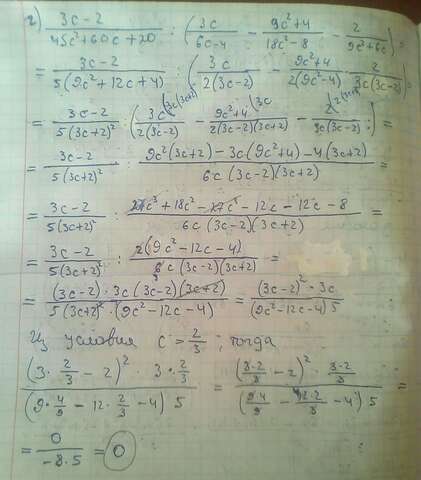 2) (3c-2)/(45c²+60c+20) : (3c/(6c-4) - (9c²+4)/(18c²-8) - 2/(9c²+6c)) =
= (3c-2)/(5(9c²+12c+4)) : (3c/(2(3c-2)) - (9c²+4)/(2(9c²-4)) - 2/(3c(3c-2))) =
= (3c-2)/(5(3c+2)²) : (3c/(2(3c-2)) - (9c²+4)/(2(3c-2)(3c+2)) - 2/(3c(3c-2))) =
= (3c-2)/(5(3c+2)²) : (9c²(3c+2)-3c(9c²+4)-4(3c+2))/(6c(3c-2)(3c+2)) =
= (3c-2)/(5(3c+2)²) : (27c³+18c²-27c³-12c-12c-8)/(6c(3c-2)(3c+2)) =
= (3c-2)/(5(3c+2)²) : 2(9c²-12c-4)/(6c(3c-2)(3c+2)) =
= ((3c-2)·3c(3c-2)(3c+2))/(5(3c+2)²·(9c²-12c-4)) = ((3c-2)²·3c)/((9c²-12c-4)5)
Из условия c = 2/3 ; тогда
((3·2/3-2)²·3·2/3)/((9·4/9-12·2/3-4)5) = ((3·2/3-2)²·3·2/3)/((9·4/9-12·2/3-4)5) =
= 0/(-8·5) = 0